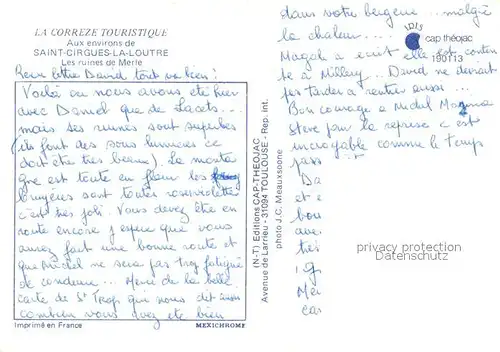 LA CORREZE TOURISTIQUE
Aux environs de
SAINT-CIRGUES-LA-LOUTRE
Les ruines de Merle
Reçu lettre David tout va bien !
Voilà où nous avons été hier
avec Daniel que de lacets...
mais ses ruines sont superbes
(ils font des sons lumières ce
doit être très beau). La monta
gne est toute en fleur les
bruyères sont toutes roses violettes
c'est très joli. Vous devez être en
route encore j espère que vous
aurez fait une bonne route et
que Michel ne sera pas trop fatigué
de conduire... Merci de la belle
carte de St Trop que nous dit
combien vous avez été bien
Imprimé en France
MEXICHROME
(N-T) Editions CAP-THEOJAC
Avenue de Larrieu - 31094 TOULOUSE - Rep. int.
photo J.C. Meauxsoone
dans votre bergerie... malgré
la chaleur....
Magali a écrit elle est conten
te à Millery. David ne devrait
pas tarder à rentrer aussi...
Bon courage à Michel
Steve pour la reprise c est
incroyable comme le temps
pass
Da
et e
bou
ave
très
Mer
cas
IRIS
cap théojac
190113
privacy protection
Datenschutz